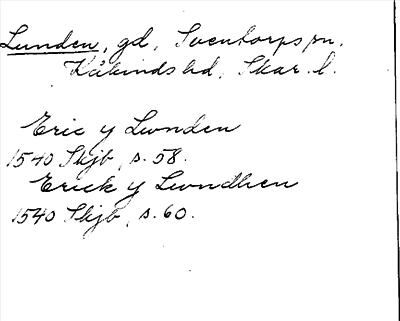 Lunden, gd, Sventorps sn.
Kåkinds hd, Skar. l.
Eric y Lwnden
1540 Skjb, s. 58.
Erick y Lwndhen
1540 Skjb, s. 60.